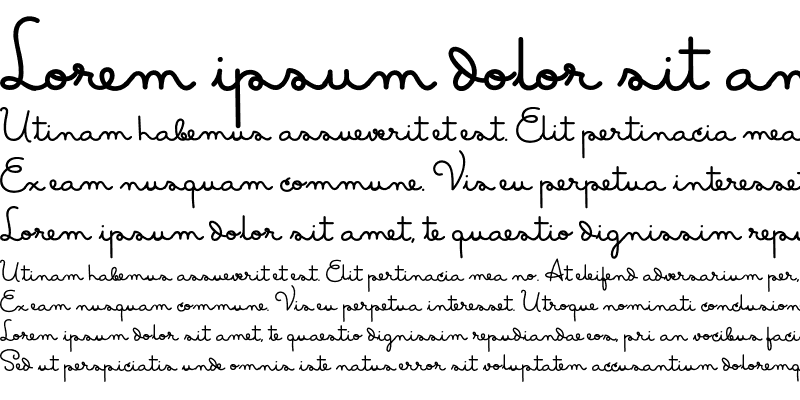 Lorem ipsum dolor sit am
Utinam habemus assueverit et est. Elit pertinacia mea
Ex eam nusquam commune. Vis eu perpetua interesset
Lorem ipsum dolor sit amet, te quaestio dignissim repu
Utinam habemus assueverit et est. Elit pertinacia mea no. At eleifend adversarium per,
Ex eam nusquam commune. Vis eu perpetua interesset. Utroque nominati conclusion
Lorem ipsum dolor sit amet, te quaestio dignissim repudiandae eos, pri an vocibus faci
Sed ut perspiciatis unde omnis iste natus error sit voluptatem accusantium doloremq